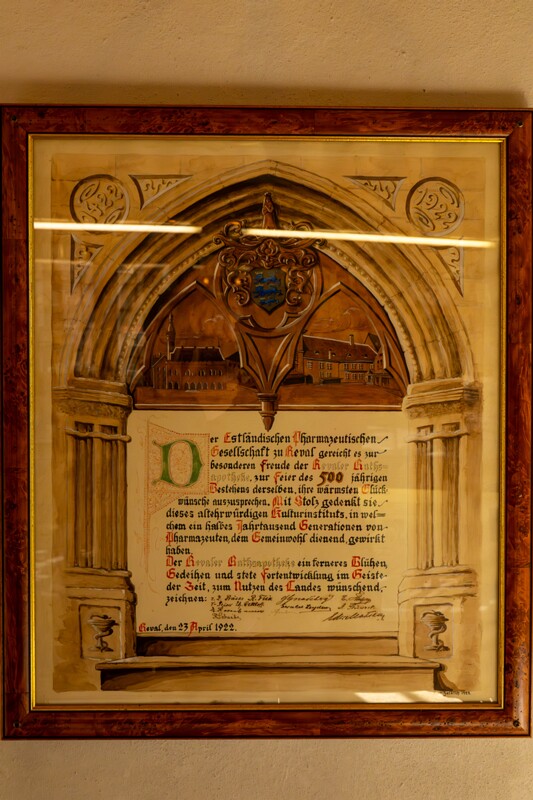 1422
1922
Der Estländischen Pharmazeutischen
Gesellschaft zu Reval gereicht es zur
besonderen Freude der Revaler Raths-
apotheke, zur Feier des 500 jährigen
Bestehens derselben, ihre wärmsten Glück-
wünsche auszusprechen. Mit Stolz gedenkt sie
dieses altehrwürdigen Kulturinstituts, in wel-
chem ein halbes Jahrtausend Generationen von
Pharmazeuten, dem Gemeinwohl dienend, gewirkt
haben.
Der Revaler Rathsapotheke ein ferneres Blühen,
Gedeihen und stete Fortentwicklung im Geiste
der Zeit, zum Nutzen des Landes wünschend,
zeichnen:
Reval, den 23 April 1922.